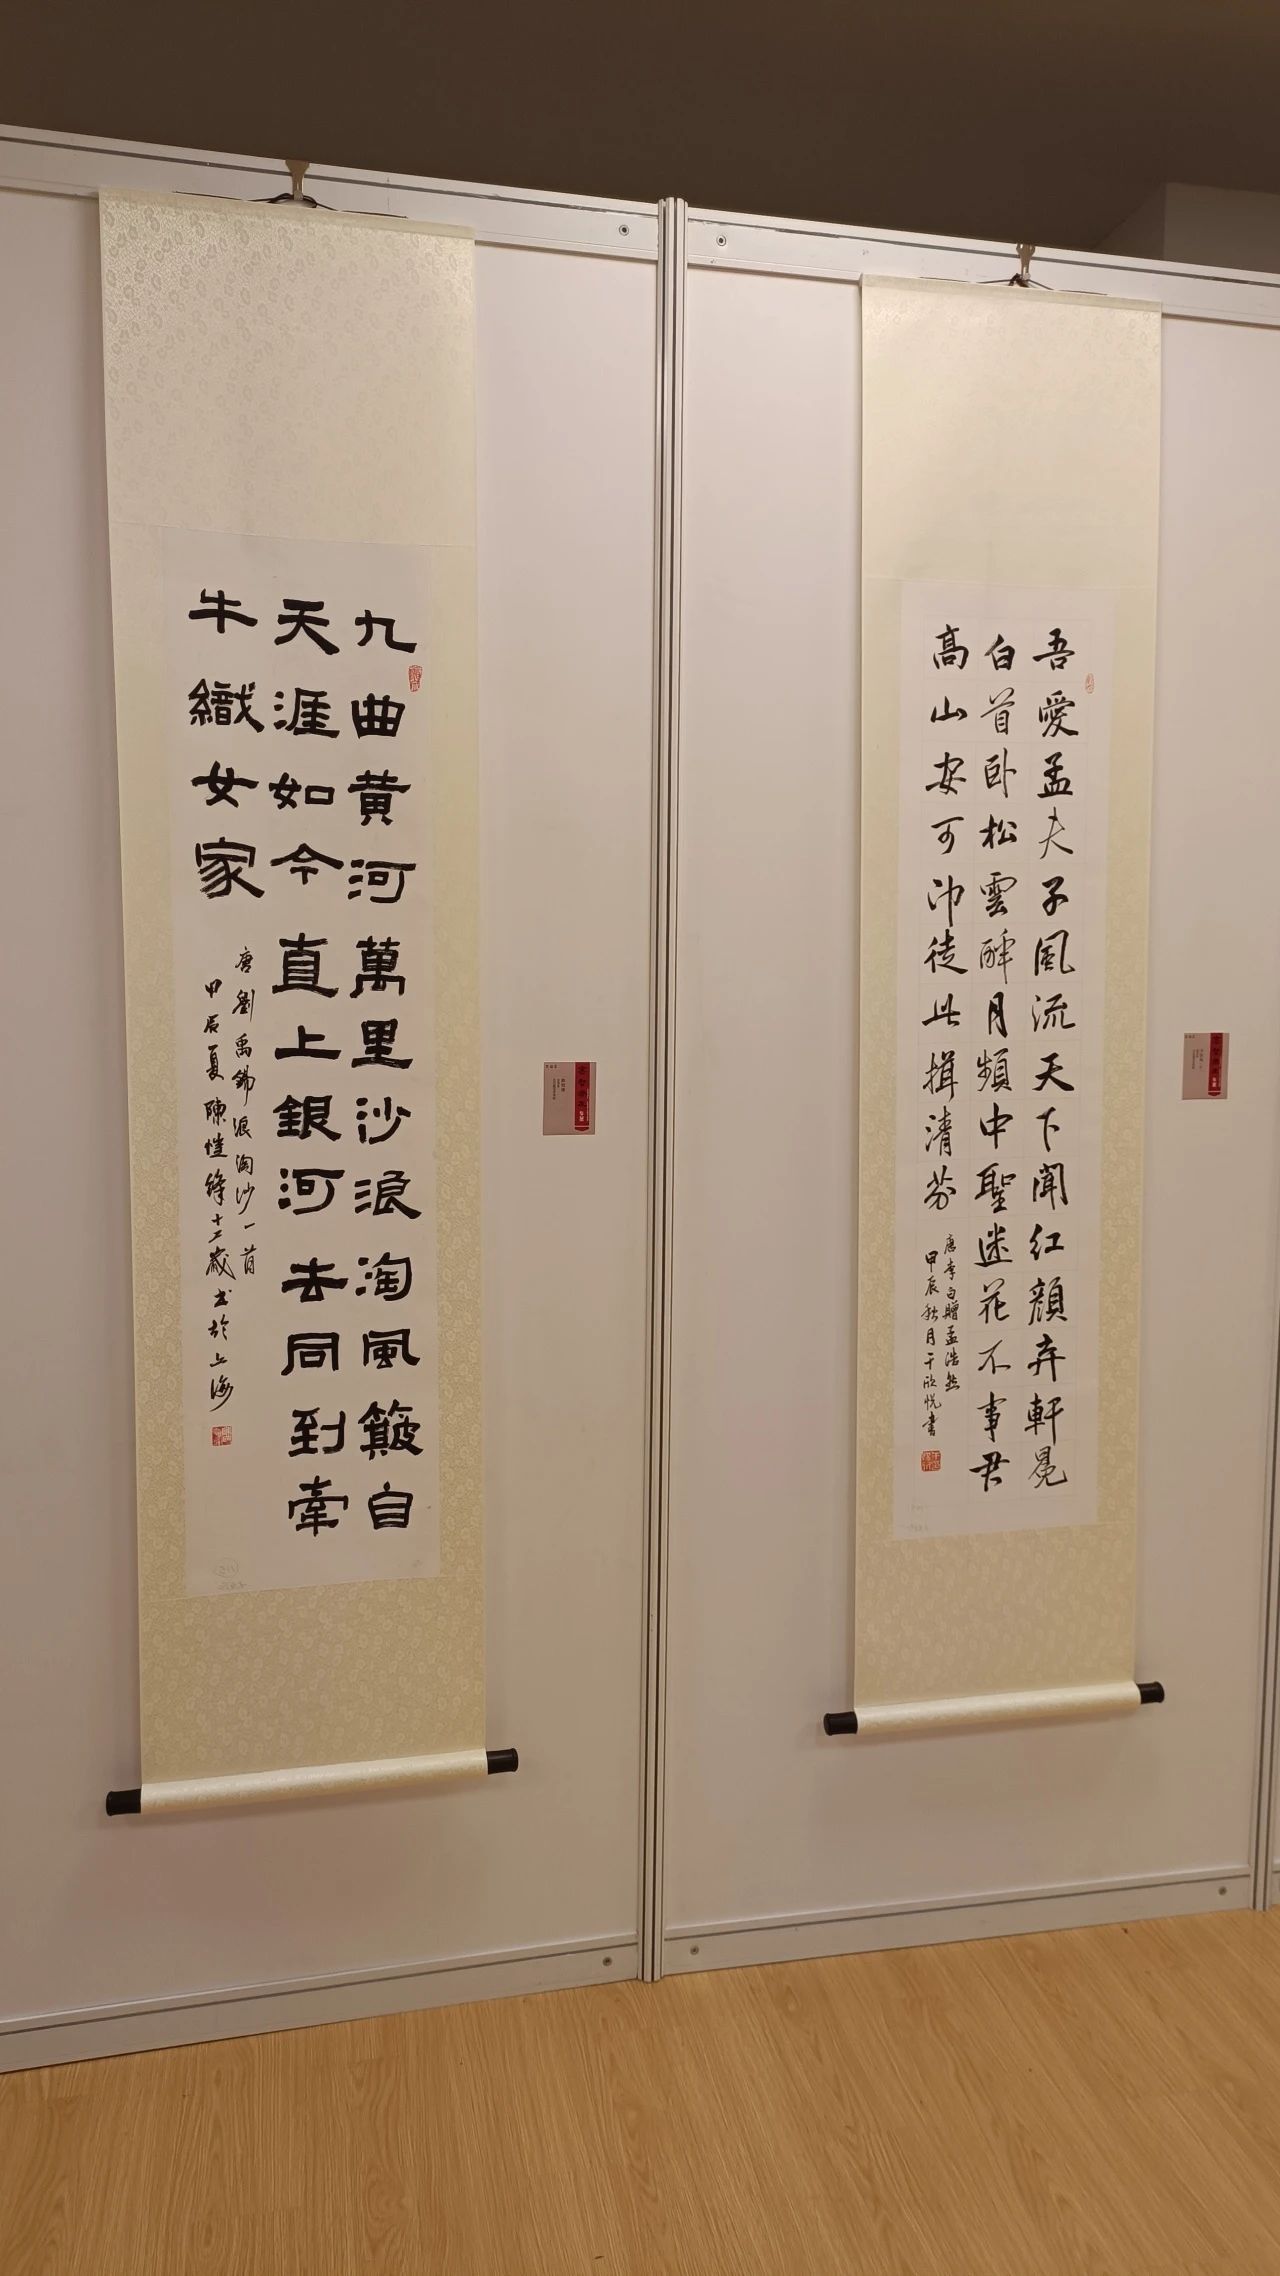 九曲黄河萬里沙浪淘風簸自
天涯如今直上銀河去同到牽
牛織女家
唐劉禹錫浪淘沙一首
甲辰夏陳愷鋒歲书於上海
吾愛孟夫子風流天下聞紅顔弃軒冕
白首卧松雲醉月頻中聖迷花不事君
高山安可仰徒此揖清芬
唐李白贈孟浩然
甲辰秋月于欣悦書